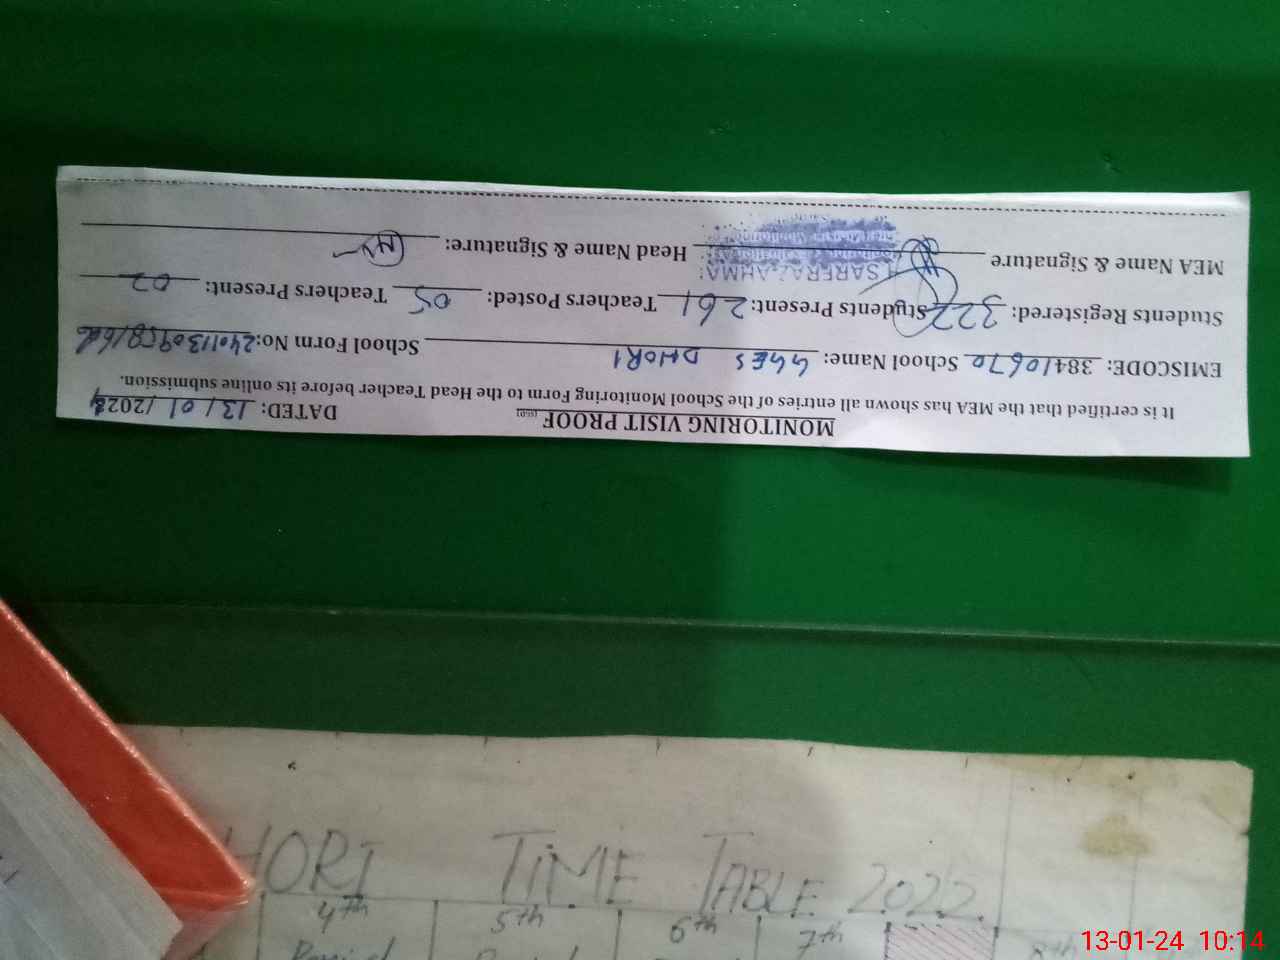 MONITORING VISIT PROOF
DATED: 13/01/2024
It is certified that the MEA has shown all entries of the School Monitoring Form to the Head Teacher before its online submission.
EMISCODE: 38410670 School Name: GGES DHORI School Form No:
Students Registered: 322 Students Present: 261 Teachers Posted: 05 Teachers Present: 02
MEA Name & Signature Head Name & Signature:
HORI TIME TABLE 2022
4th 5th 6th 7th 8th
Period
13-01-24 10:14